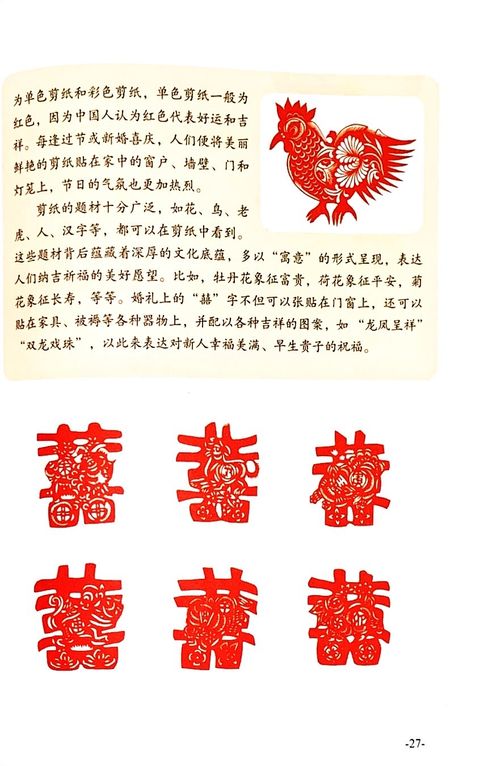 为单色剪纸和彩色剪纸，单色剪纸一般为
红色，因为中国人认为红色代表好运和吉
祥。每逢过节或新婚喜庆，人们便将美丽
鲜艳的剪纸贴在家中的窗户、墙壁、门和
灯笼上，节日的气氛也更加热烈。
剪纸的题材十分广泛，如花、鸟、老
虎、人、汉字等，都可以在剪纸中看到。
这些题材背后蕴藏着深厚的文化底蕴，多以“寓意”的形式呈现，表达
人们纳吉祈福的美好愿望。比如，牡丹花象征富贵，荷花象征平安，菊
花象征长寿，等等。婚礼上的“囍”字不但可以张贴在门窗上，还可以
贴在家具、被褥等各种器物上，并配以各种吉祥的图案，如“龙凤呈祥”
“双龙戏珠”，以此来表达对新人幸福美满、早生贵子的祝福。
囍 囍 囍
囍 囍 囍
-27-